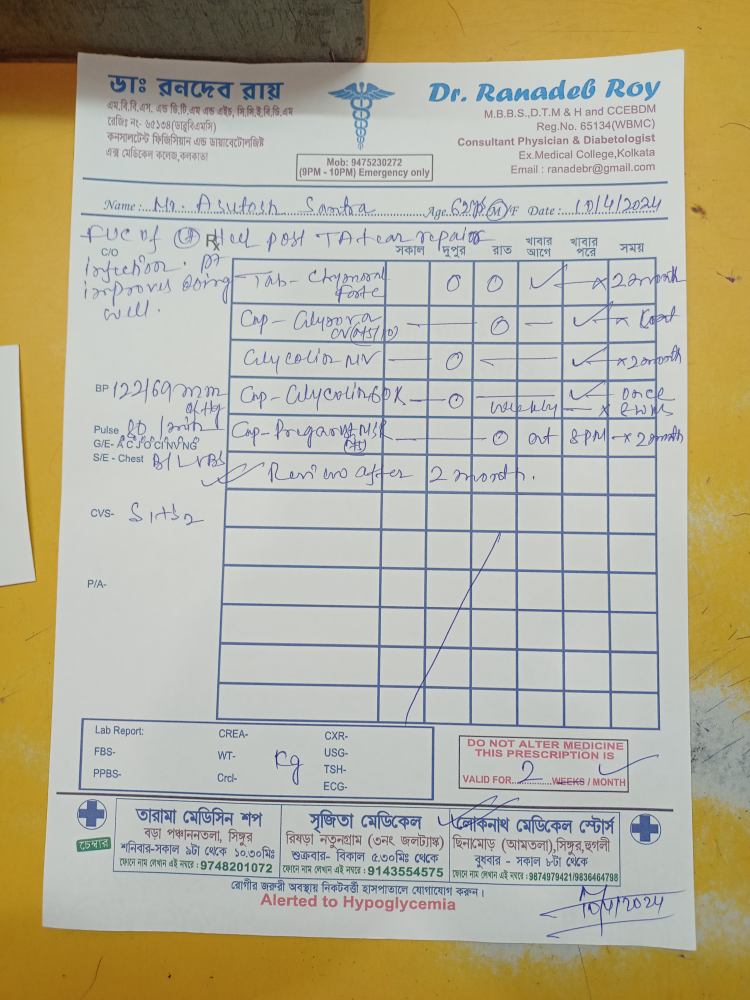 ডাঃ রনদেব রায়
এম.বি.বি.এস. এন্ড ডি.টি.এম এন্ড এইচ, সি.সি.ই.বি.ডি.এম
রেজিঃ নং- ৬৫১৩৪(ডাব্লুবিএমসি)
কনসালটেন্ট ফিজিসিয়ান এন্ড ডায়াবেটোলজিষ্ট
এক্স মেডিকেল কলেজ,কলকাতা
Mob: 9475230272
(9PM - 10PM) Emergency only
Dr. Ranadeb Roy
M.B.B.S.,D.T.M & H and CCEBDM
Reg.No. 65134(WBMC)
Consultant Physician & Diabetologist
Ex.Medical College,Kolkata
Email : ranadebr@gmail.com
Name : Mr. Asutosh Santra Age 62 M/F Date : 10/4/2024
FUC of heel post
C/O Rx
infection. pt
improves doing
well.
সকাল দুপুর রাত খাবার আগে খাবার পরে সময়
Tab- Forte O O ✓ x 2 month
Cap- O ✓ x
Glycolin NV O ✓ x 2 month
Cap- Glycolin 60K O weekly ✓ once x
Cap- O at 8PM x 2 month
Review after 2 month.
BP 122/69 mm of Hg
Pulse 80 /min
G/E- A C J O CI NV NG
S/E - Chest B/L VBS
CVS- S1+S2
P/A-
Lab Report:
FBS-
PPBS-
CREA-
WT- Kg
Crcl-
CXR-
USG-
TSH-
ECG-
DO NOT ALTER MEDICINE
THIS PRESCRIPTION IS
VALID FOR 2 WEEKS / MONTH
চেম্বার
তারামা মেডিসিন শপ
বড়া পঞ্চাননতলা, সিঙ্গুর
শনিবার-সকাল ৯টা থেকে ১০.৩০মিঃ
ফোনে নাম লেখান এই নম্বরে : 9748201072
সৃজিতা মেডিকেল
রিষড়া নতুনগ্রাম (৩নং জলট্যাঙ্ক)
শুক্রবার- বিকাল ৫.৩০মিঃ থেকে
ফোনে নাম লেখান এই নম্বরে : 9143554575
লোকনাথ মেডিকেল স্টোর্স
ছিনামোড় (আমতলা),সিঙ্গুর,হুগলী
বুধবার - সকাল ৮টা থেকে
ফোনে নাম লেখান এই নম্বরে : 9874979421/9836464798
রোগীর জরুরী অবস্থায় নিকটবর্তী হাসপাতালে যোগাযোগ করুন।
Alerted to Hypoglycemia
10/4/2024